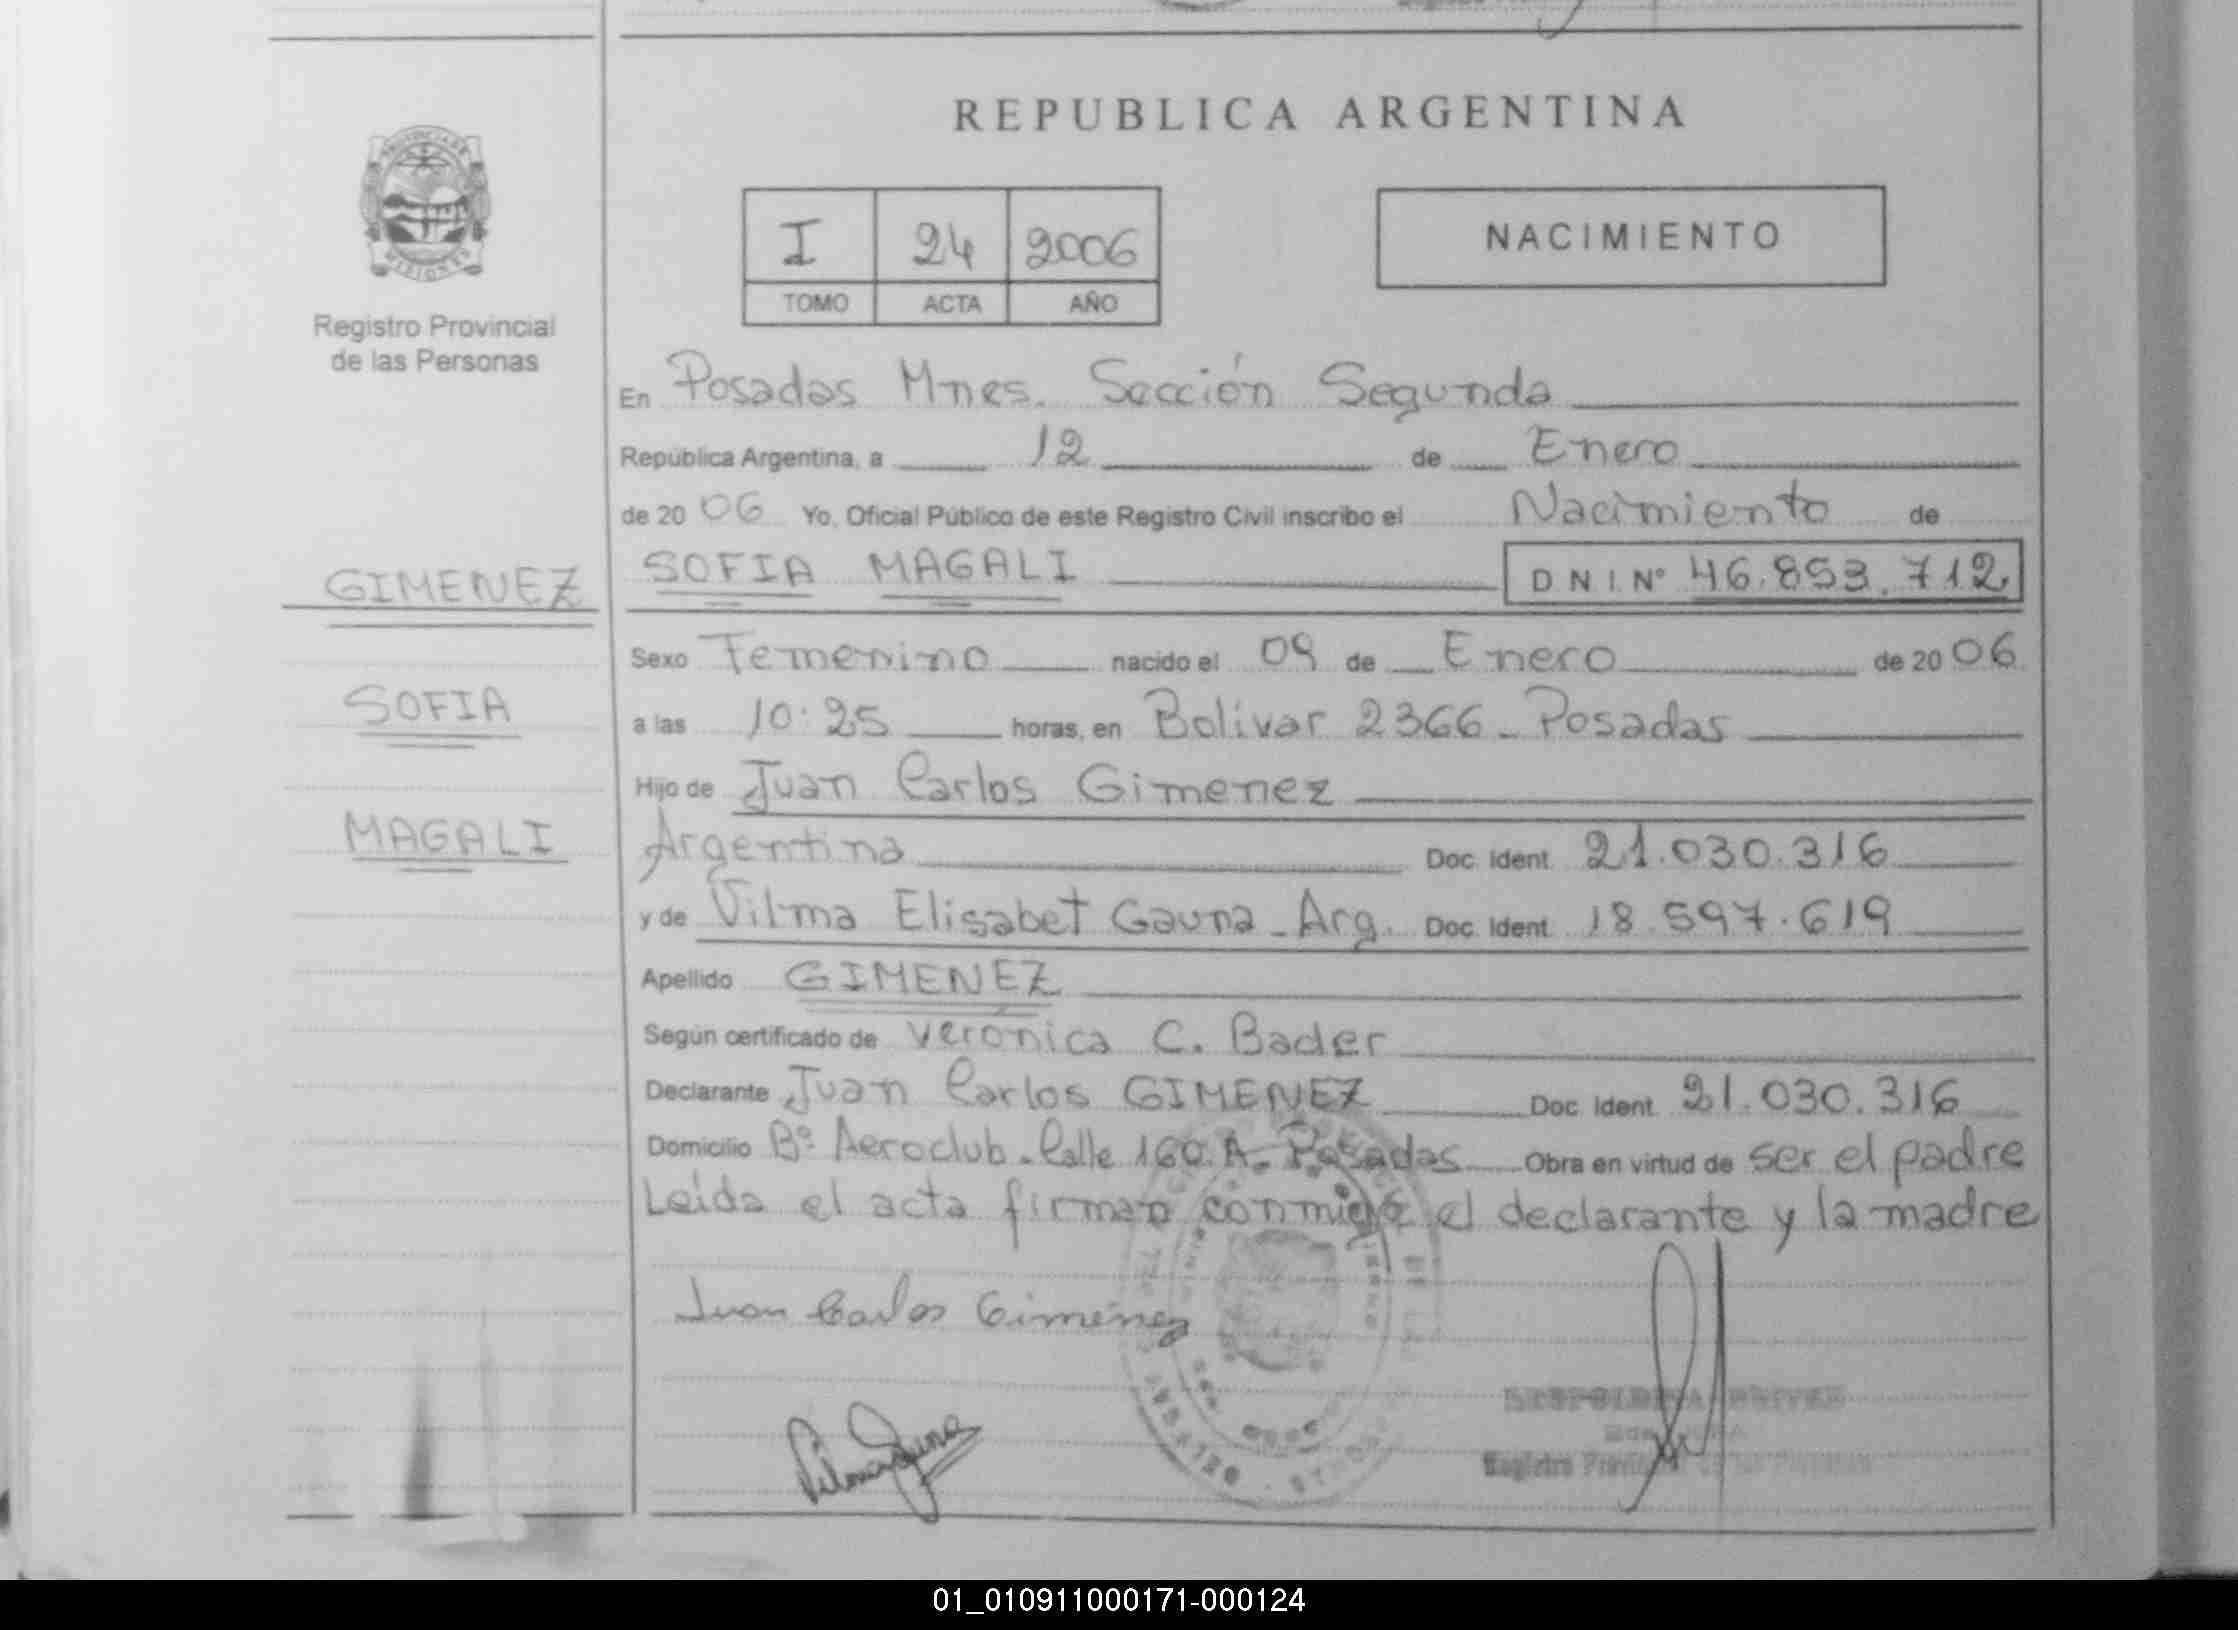 REPUBLICA ARGENTINA
NACIMIENTO
I 24 2006
TOMO ACTA AÑO
MISIONES
Registro Provincial
de las Personas
En Posadas Mnes. Sección Segunda
República Argentina, a 12 de Enero
de 20 06 Yo, Oficial Público de este Registro Civil inscribo el Nacimiento de
GIMENEZ
SOFIA MAGALI D N I. Nº 46.853.712
Sexo Femenino nacido el 09 de Enero de 20 06
SOFIA
a las 10:25 horas, en Bolivar 2366 - Posadas
Hijo de Juan Carlos Gimenez
MAGALI
Argentina Doc. Ident. 21.030.316
y de Vilma Elisabet Gauna - Arg. Doc. Ident. 18.597.619
Apellido GIMENEZ
Según certificado de Verónica C. Bader
Declarante Juan Carlos GIMENEZ Doc. Ident. 21.030.316
Domicilio Bº Aeroclub - Calle 160 A - Posadas Obra en virtud de ser el padre
Leída el acta firman conmigo el declarante y la madre
Juan Carlos Gimenez
Registro Provincial
01_010911000171-000124